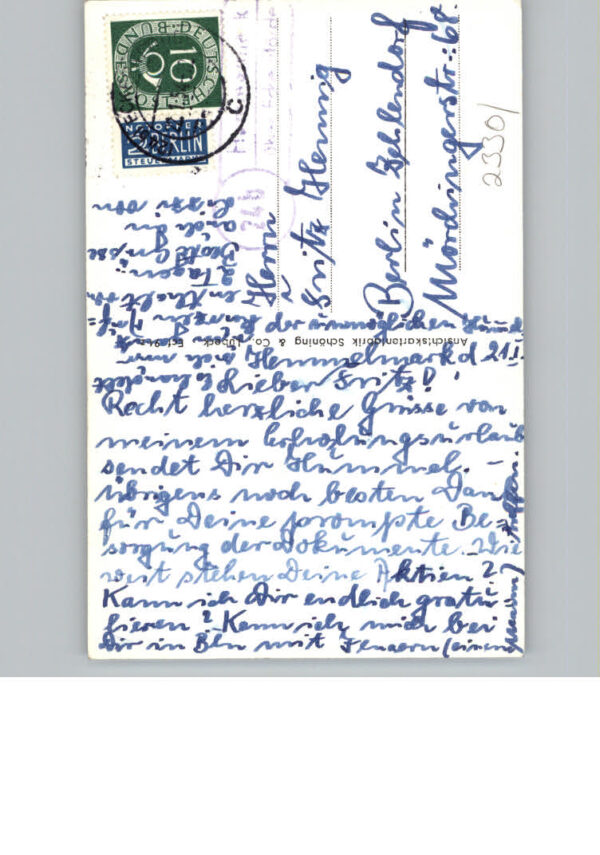 DEUTSCHE BUNDESPOST
10
NOTOPFER
2 BERLIN
STEUERMARKE
C
24b
Herrn
Fritz Hennig
Berlin Zehlendorf
Mördingerstr.: 68.
23301
Ansichtskartenfabrik Schöning & Co., Lübeck
Hemmelmark d 21.I.
Lieber Fritz!
Recht herzliche Grüsse von
meinem Erholungsurlaub
sendet Dir Hummel. –
Übrigens noch besten Dank
für Deine prompte Be
sorgung der Dokumente. Wie
weit stehen Deine Aktien?
Kann ich Dir endlich gratu-
lieren? Kann ich mich bei
Dir in Bln mit Jenaern (einem
treffen. –
2 Tagen
Grüsse
auch an
von